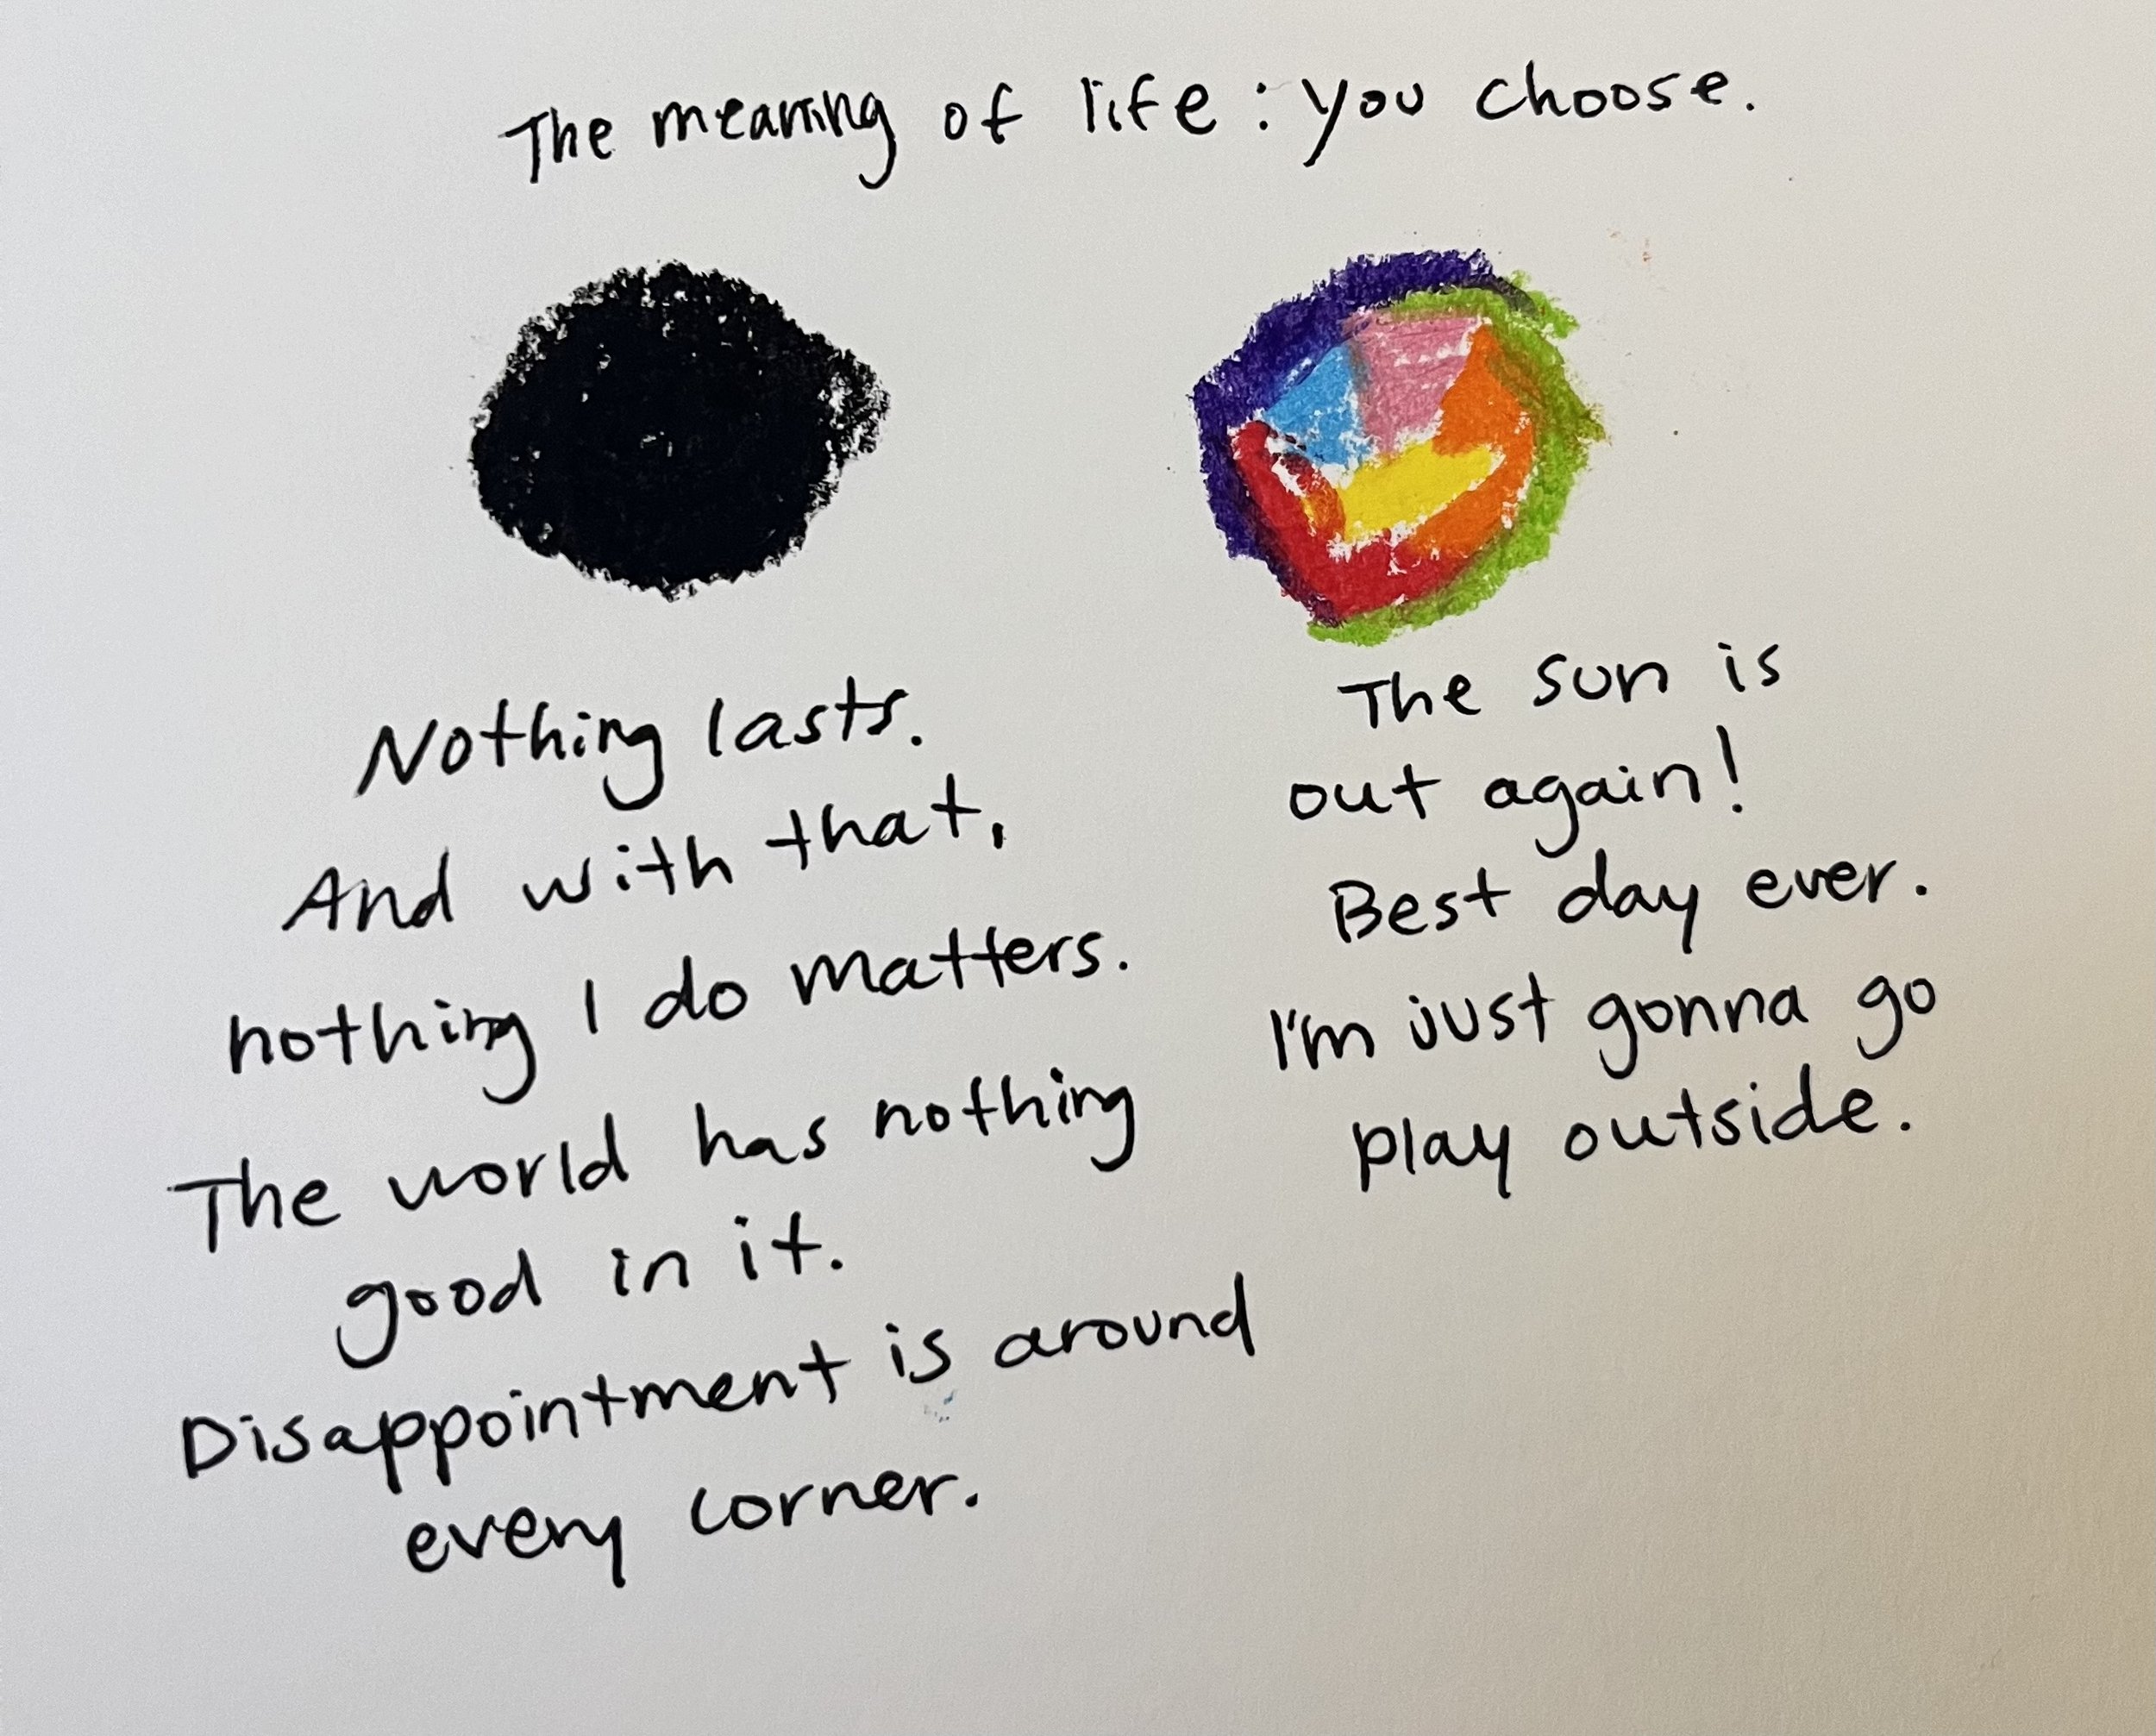 The meaning of life : you choose.
Nothing lasts.
And with that,
nothing I do matters.
The world has nothing
good in it.
Disappointment is around
every corner.
The sun is
out again!
Best day ever.
I'm just gonna go
play outside.